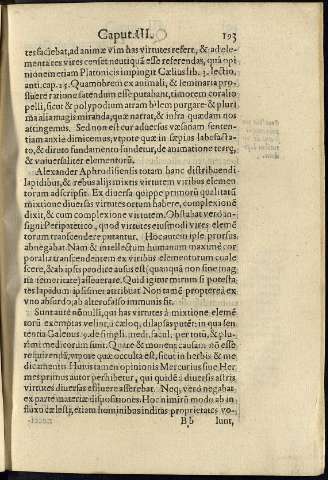 Caput. III. 193
tes faciebat, ad animæ vim has virtutes refert, & ad ele-
menta res vires censet neutiquā esse referendas, quā opi-
nionem etiam Platonicis impingit Cælius lib. 3. lectio.
anti. cap. 25. Quamobrem ex animali, & seminaria pro-
fluere ratione fatendum esse putabant, timorem coralio
pelli, sicut & polypodium atram bilem purgare: & pluri-
ma alia magis miranda, quæ narrat, & infra quædam nos
attingemus. Sed non est cur aduersus væsanam senten-
tiam anxiè dimicemus, vtpote quæ in sæpius labefacta-
to, & diruto fundamento fundetur, de animatione terræ,
& vniuersaliter elementorū.
Alexander Aphrodisiensis totam hanc distribuendi
lapidibus, & rebus alijs mixtis virtutem viribus elemen
torum adscripsit. Ex diuersa quippe primorū qualitatū
mixtione diuersas virtutes ortum habere, complexionē
dixit, & cum complexione virtutem. Obstabat verò in-
signi Peripatetico, quod virtutes eiusmodi vires elemē
torum transcendere putantur. Hoc autem ipse prorsus
abnegabat. Nam & intellectum humanum maximè cor
poralia transcendentem ex viribus elementorum coale
scere, & ab ipsis prodire ausus est (quanquā non sine mag
na temeritate) asseuerate. Quid igitur mirum si potesta
tes lapidum ipsismet attribuat? Non tamē propterea ex
vno absurdo, ab altero falso immunis fit.
Sunt autē nōnulli, qui has virtutes à mixtione elemē
torū exemptas velint, à cæloq; dilapsas putēt: in qua sen
tentia Galenus 10. de simpli. medi. facul. per totū, & plu-
rimi medicorum sunt. Quare & monent causam nō esse
requirendā, vtpote quæ occulta est, sicut in herbis & me
dicamentis. Huius tamen opinionis Mercurius siue Her
mes primus autor perhibetur, qui quidē à diuersis astris
virtutes diuersas effluere asserebat. Neq; verò negabat
ex parte materiæ dispositiones. Hoc nimirū modo ab in
fluxu cælesti, etiam hominibus inditas proprietates vo-
Bb lunt,